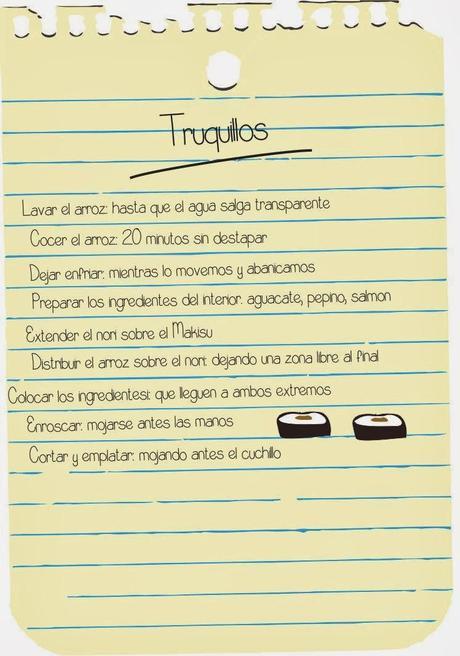 Truquillos
Lavar el arroz: hasta que el agua salga transparente
Cocer el arroz: 20 minutos sin destapar
Dejar enfriar: mientras lo movemos y abanicamos
Preparar los ingredientes del interior: aguacate, pepino, salmon
Extender el nori sobre el Makisu
Distribuir el arroz sobre el nori: dejando una zona libre al final
Colocar los ingredientes: que lleguen a ambos extremos
Enroscar: mojarse antes las manos
Cortar y emplatar: mojando antes el cuchillo